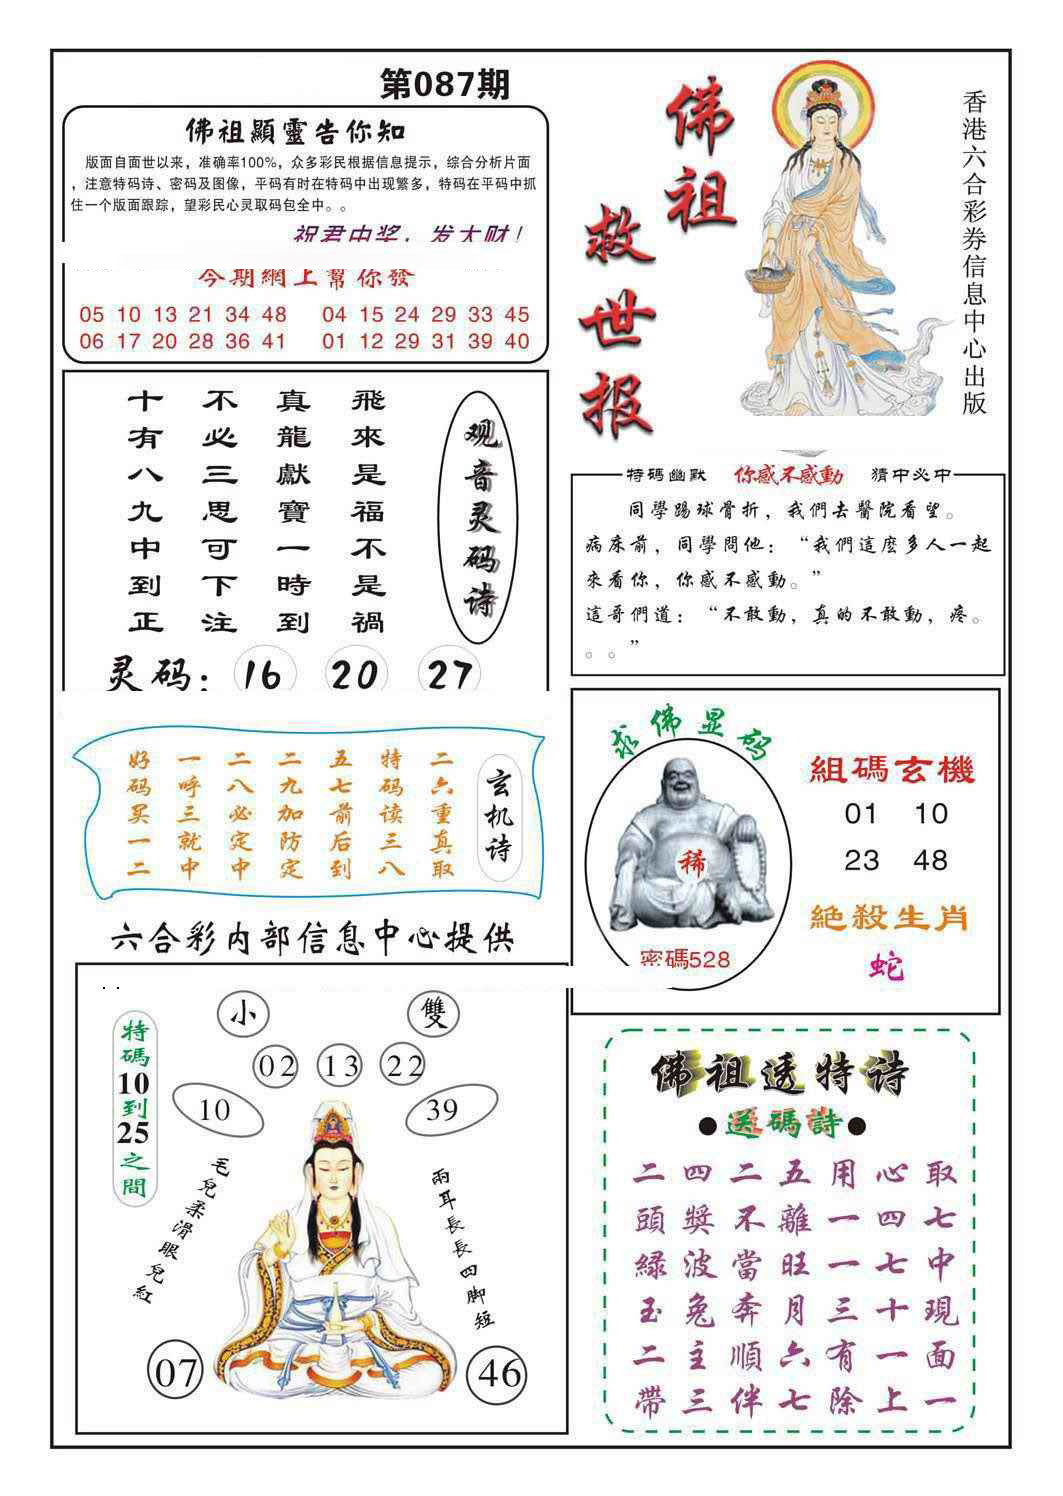 第087期
佛祖顯靈告你知
版面自面世以来，准确率100%，众多彩民根据信息提示，综合分析片面
，注意特码诗、密码及图像，平码有时在特码中出现繁多，特码在平码中抓
住一个版面跟踪，望彩民心灵取码包全中。。
祝君中奖，发大财！
今期網上幫你發
05 10 13 21 34 48 04 15 24 29 33 45
06 17 20 28 36 41 01 12 29 31 39 40
佛祖
救世报
香港六合彩券信息中心出版
观音灵码诗
飛來是福不是禍
真龍獻寶一時到
不必三思可下注
十有八九中到正
灵码：16 20 27
特碼幽默 你感不感動 猜中必中
同學踢球骨折，我們去醫院看望。
病床前，同學問他：“我們這麽多人一起
來看你，你感不感動。”
這哥們道：“不敢動，真的不敢動，疼。
。。”
玄机诗
二六重真取
特码读三八
五七前后到
二九加防定
二八必定中
一呼三就中
好码买一二
求佛显码
稀
密碼528
組碼玄機
01 10
23 48
絶殺生肖
蛇
六合彩内部信息中心提供
特碼10到25之間
小 雙
02 13 22
10 39
毛兒柔滑眼兒紅
兩耳長長四脚短
07 46
佛祖透特诗
●送碼詩●
二四二五用心取
頭獎不離一四七
緑波當旺一七中
玉兔奔月三十現
二主順六有一面
帶三伴七除上一